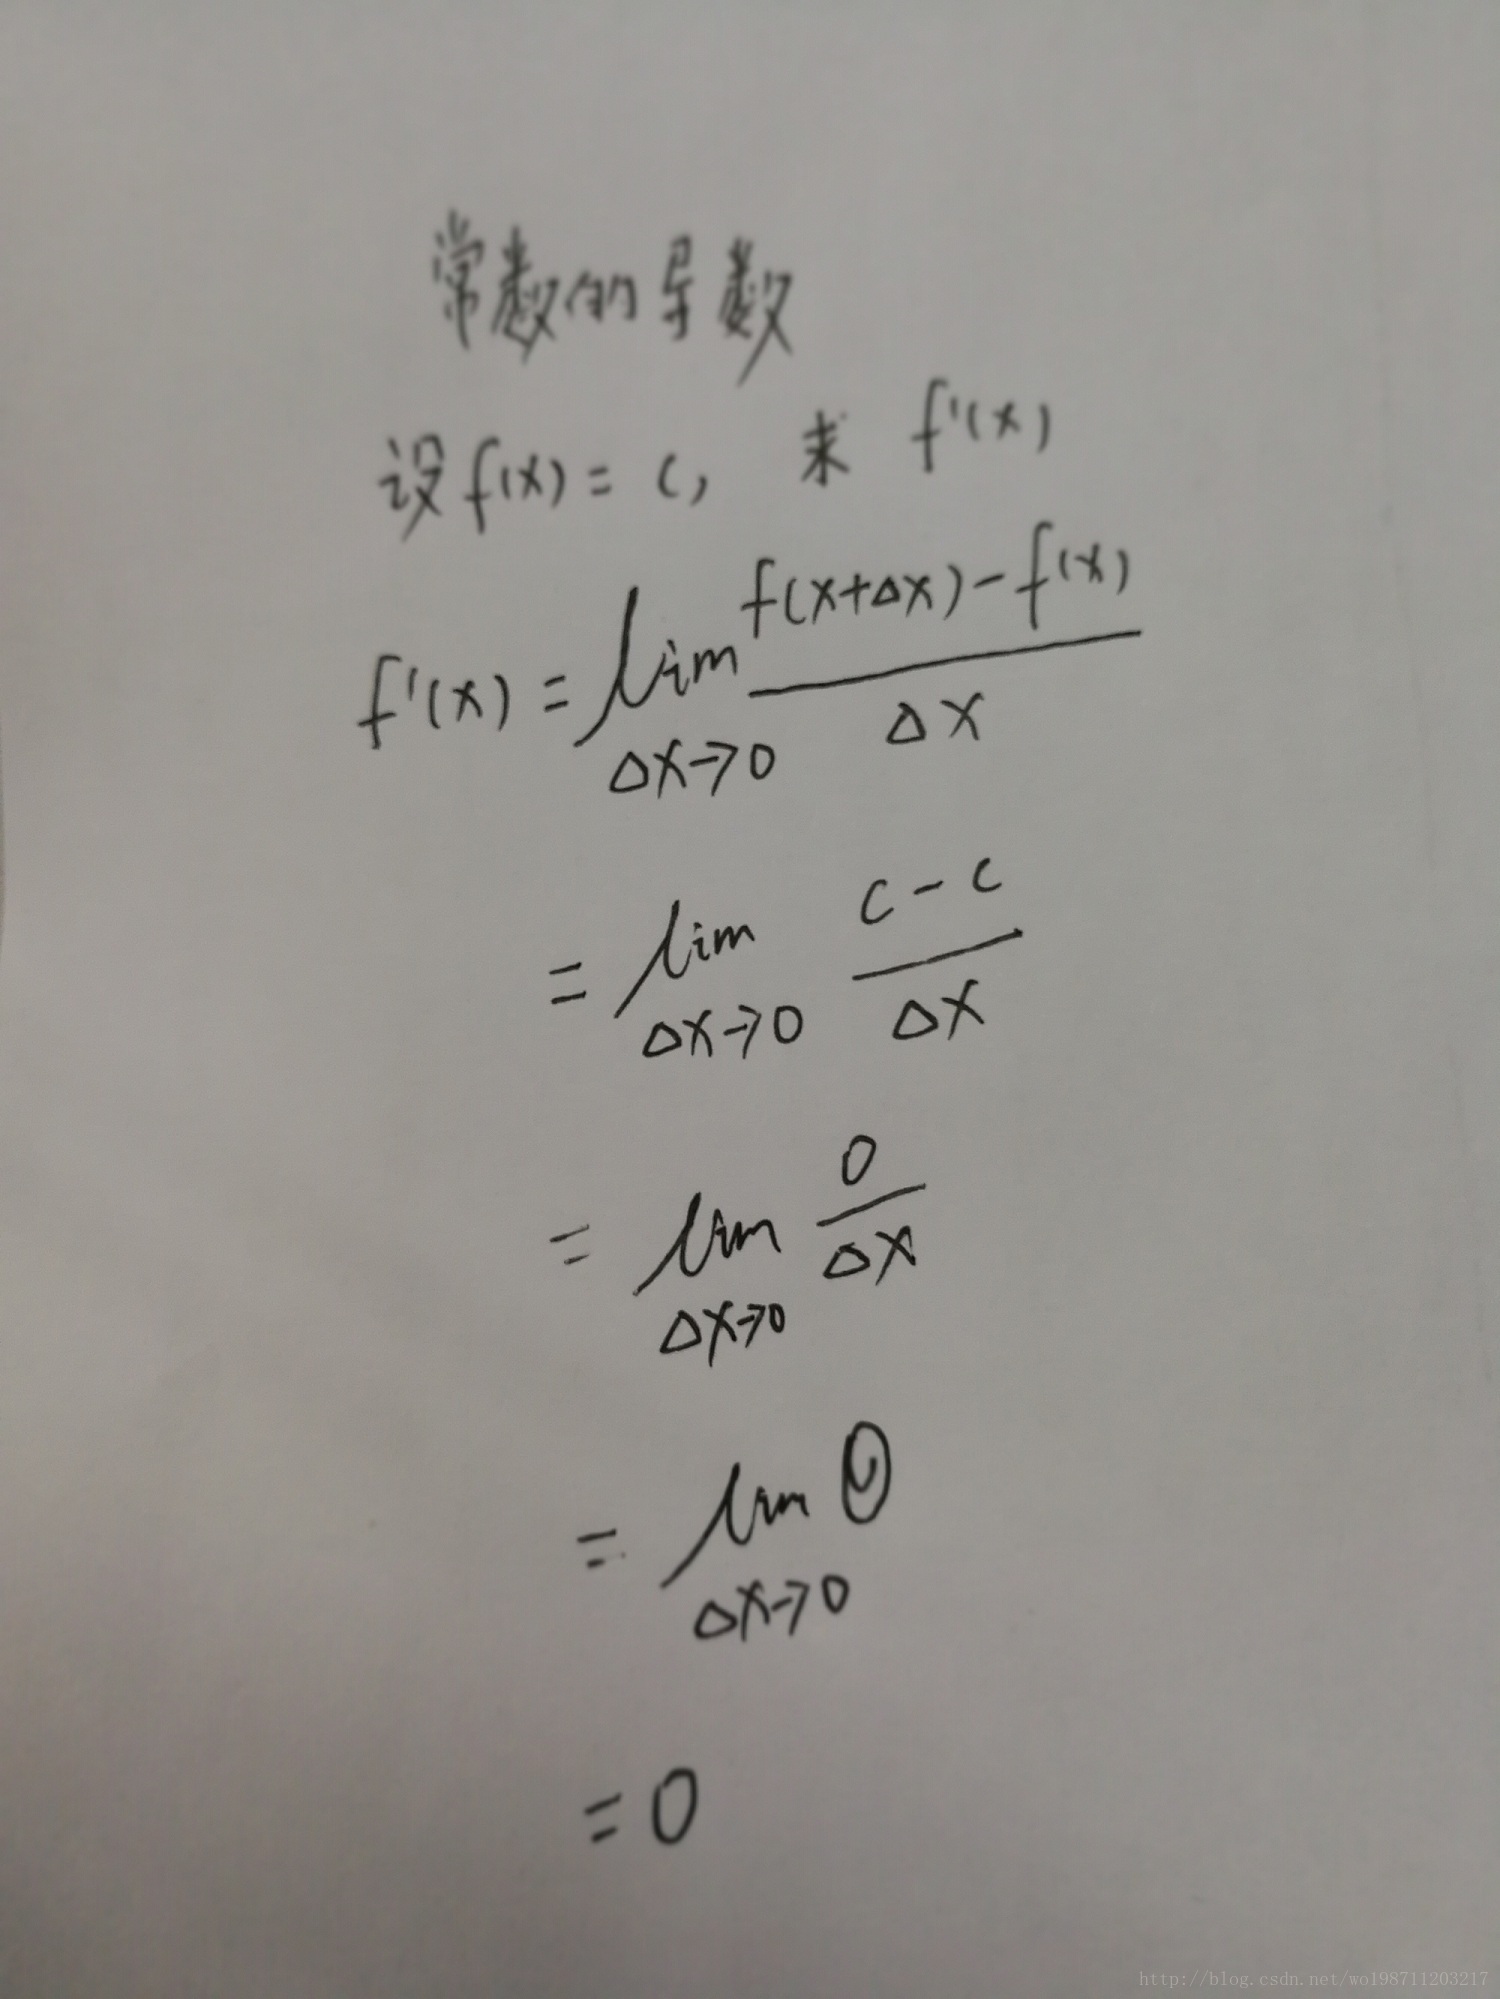 常数的导数
设f(x)=c, 求 f'(x)
f'(x) = lim Δx→0 (f(x+Δx)-f(x))/Δx
= lim Δx→0 (c-c)/Δx
= lim Δx→0 0/Δx
= lim Δx→0 0
=0
http://blog.csdn.net/wo198711203217